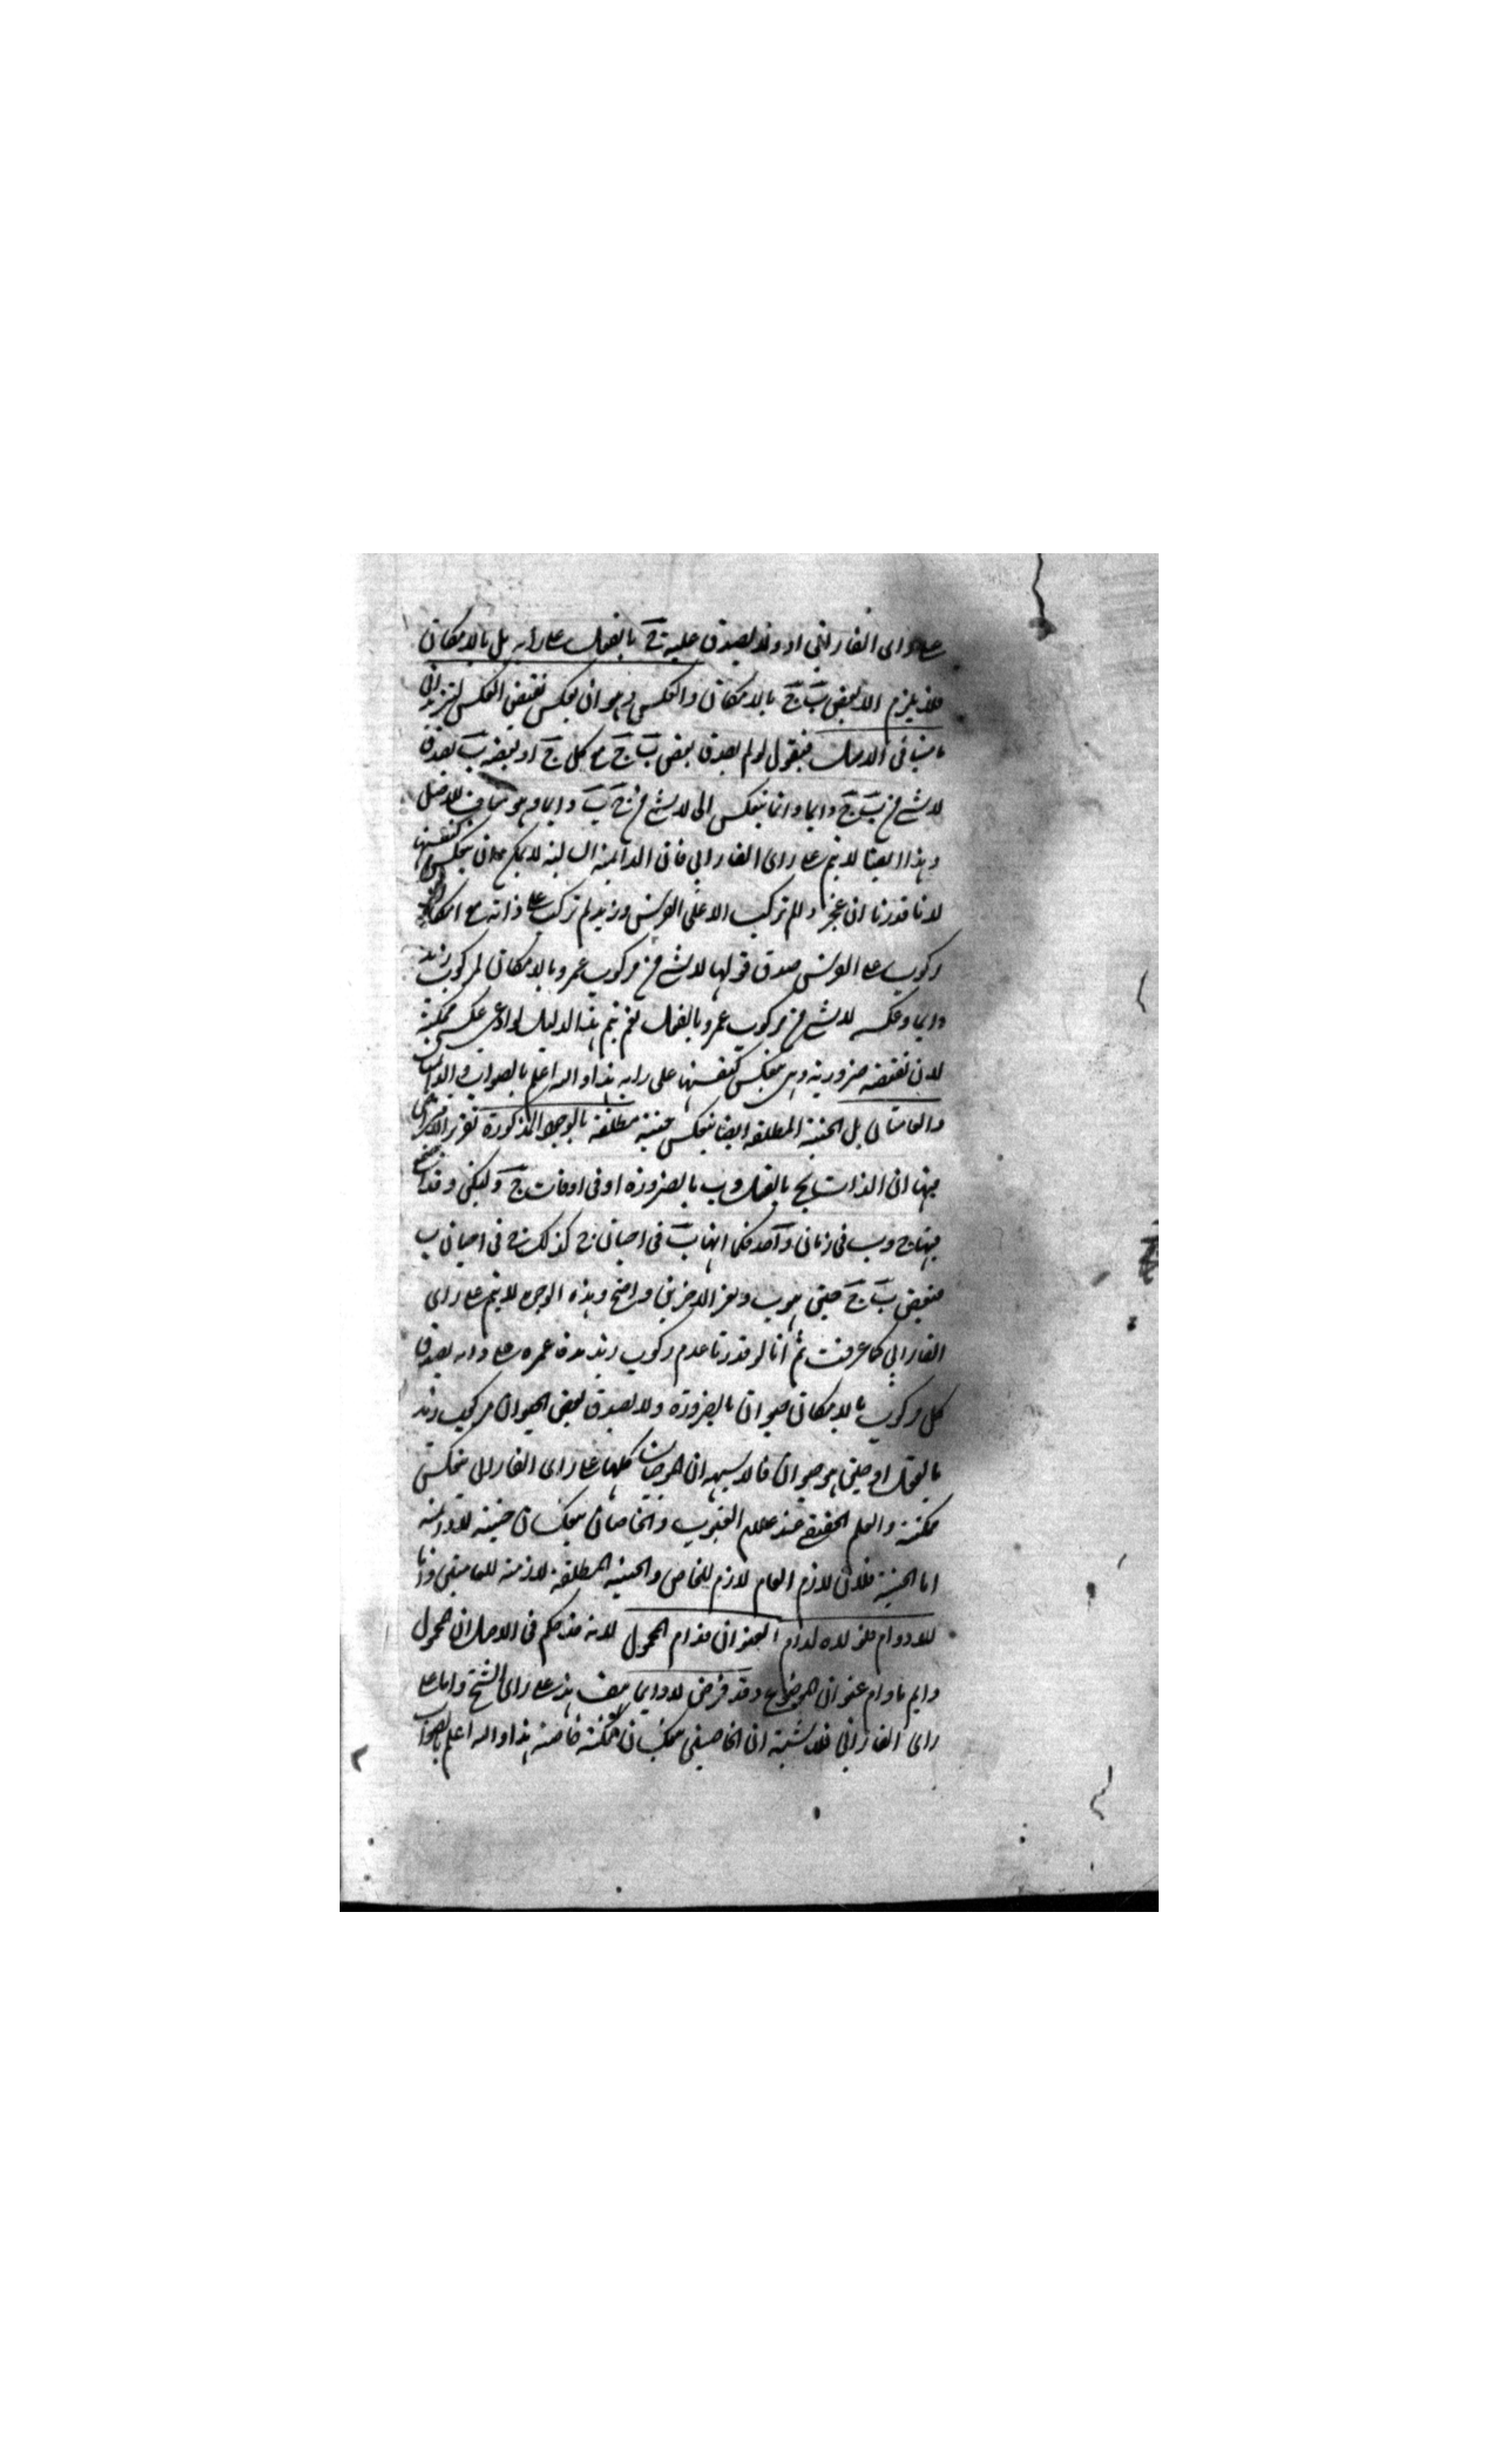 على راى الفارابى اذ ولا يصدق عليه ج بالفعل على رايه بل بالامكان
فلا يلزم الا بعض ب ج بالامكان والعكس وهو ان يعكس نقيض العكس ليرتد الى
ما ينافى الاصل فيقول لو لم يصدق بعض ب ج مع كل ج او بعضه ب لصدق
لا شئ من ب ج دايما وانما ينعكس الى لا شئ من ج ب دايما وهو مناف للاصل
وهذا ايضا لا يتم على راى الفارابى فان الدائمة السالبة لا يمكن ان ينعكس كنفسها
لانا قدرنا ان عمروا لم تركب الا على الفرس وزيد لم تركب على ذاته مع امكان
ركوب على الفرس صدق قولها لا شئ من مركوب عمرو بالامكان بمركوب زيد
دايما وعكسه لا شئ من مركوب عمرو بالفعل نعم يتم هذا الدليل لو ادعى عكس ممكنة
لان نقيضه ضرورية وهى ينعكس كنفسها على رايه هذا والله اعلم بالصواب والدائمتان
والعامتان بل الحينية المطلقة ايضا ينعكس حينية مطلقة بالوجوه المذكورة تقرير الافتراض
فيها ان الذات ج بالفعل وب بالضرورة او فى اوقات ج وليكن وقد اجتمع
فيها ج وب فى زمان واحد فكما انها ب فى احيان ج كذلك ج فى احيان ب
فبعض ب ج حين هو ب وتقرير الاخرين واضح وهذه الوجوه لا يتم على راى
الفارابى كما عرفت ثم انا لو قدرنا عدم ركوب زيد مدة عمره على دابه يصدق
كل مركوب بالامكان حيوان بالضرورة ولا يصدق بعض الحيوان مركوب زيد
بالفعل او حين هو حيوان فالاشبه ان الموجبات كلها على راى الفارابى ينعكس
ممكنة والعلم الحقيقى عند علام الغيوب والخاصتان ينعكسان حينية لا دائمة
اما الحينية فلان لازم العام لازم للخاص والحينية المطلقة لازمة للعامتين واما
اللادوام فلانه لولاه لدام العنوان فدام المحمول لانه قد حكم فى الاصل ان المحمول
دايم ما دام عنوان الموضوع وقد فرض لا دايما هف هذا على راى الشيخ واما على
راى الفارابى فلا شبهة ان الخاصتين ينعكسان ممكنة خاصة هذا والله اعلم بالصواب